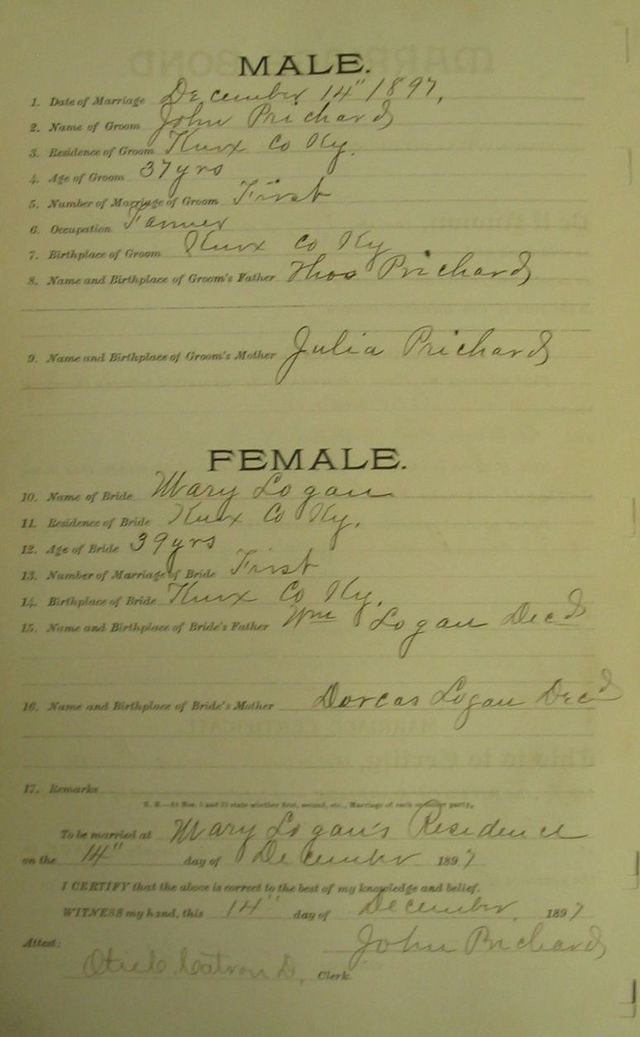 MALE.
1. Date of Marriage December 14" 1897,
2. Name of Groom John Prichard
3. Residence of Groom Knox Co Ky.
4. Age of Groom 37 yrs
5. Number of Marriage of Groom First
6. Occupation Farmer
7. Birthplace of Groom Knox Co Ky
8. Name and Birthplace of Groom's Father Thos Prichard
9. Name and Birthplace of Groom's Mother Julia Prichard
FEMALE.
10. Name of Bride Mary Logan
11. Residence of Bride Knox Co Ky.
12. Age of Bride 39 yrs
13. Number of Marriage of Bride First
14. Birthplace of Bride Knox Co Ky.
15. Name and Birthplace of Bride's Father Wm Logan Decd
16. Name and Birthplace of Bride's Mother Dorcas Logan Decd
17. Remarks
N. B.—At Nos. 5 and 13 state whether first, second, etc., Marriage of each party.
To be married at Mary Logan's Residence
on the 14" day of December 1897
I CERTIFY that the above is correct to the best of my knowledge and belief.
WITNESS my hand, this 14" day of December, 1897
Attest: John Prichard
Catron D. Clerk.